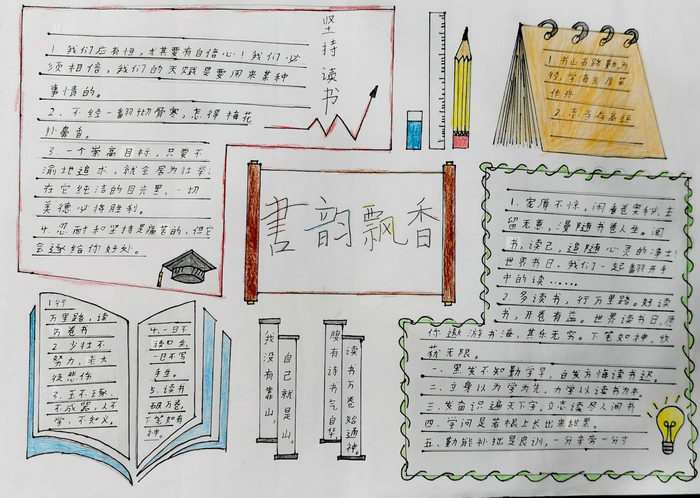 坚持读书
1.我们应有恒，尤其要有自信心！我们必
须相信，我们的天赋是要用来某种
事情的。
2.不经一翻彻骨寒，怎得梅花
扑鼻香。
3.一个崇高目标，只要不
渝地追求，就会居为壮举；
在它纯洁的目光里，一切
美德必将胜利。
4.忍耐和坚持是痛苦的，但它
会逐给你好处。
1.书山有路勤为
径，学海无涯苦
作舟
2.
書韵飘香
1.
留无意，漫随书卷人生。闲
书，读己，追随心灵的净土
世界书日，我们一起翻开手
中的读……
2.多读书，行万里路。好读
书，开卷有益。世界读书日，愿
你遨游书海，其乐无穷。下笔如神，收
获无限。
一、黑发不知勤学早，白发方悔读书迟。
二、立身以为学为先，为学以读书为本。
三、发奋识遍天下字，立志读尽人间书
四、学问是苦根上长出来甜果。
五、勤能补拙是良训，一分辛劳一分才
1.行
万里路，读
万卷书
2.少壮不
努力，老大
徒悲伤
3.玉不琢，
不成器，人不
学，不知义。
4.一日不
读口生，
一日不写
手生。
5.读书
破万卷，
下笔如有
神。
我没有靠山，
自己就是山。
腹有诗书气自华
读书万卷始通神。